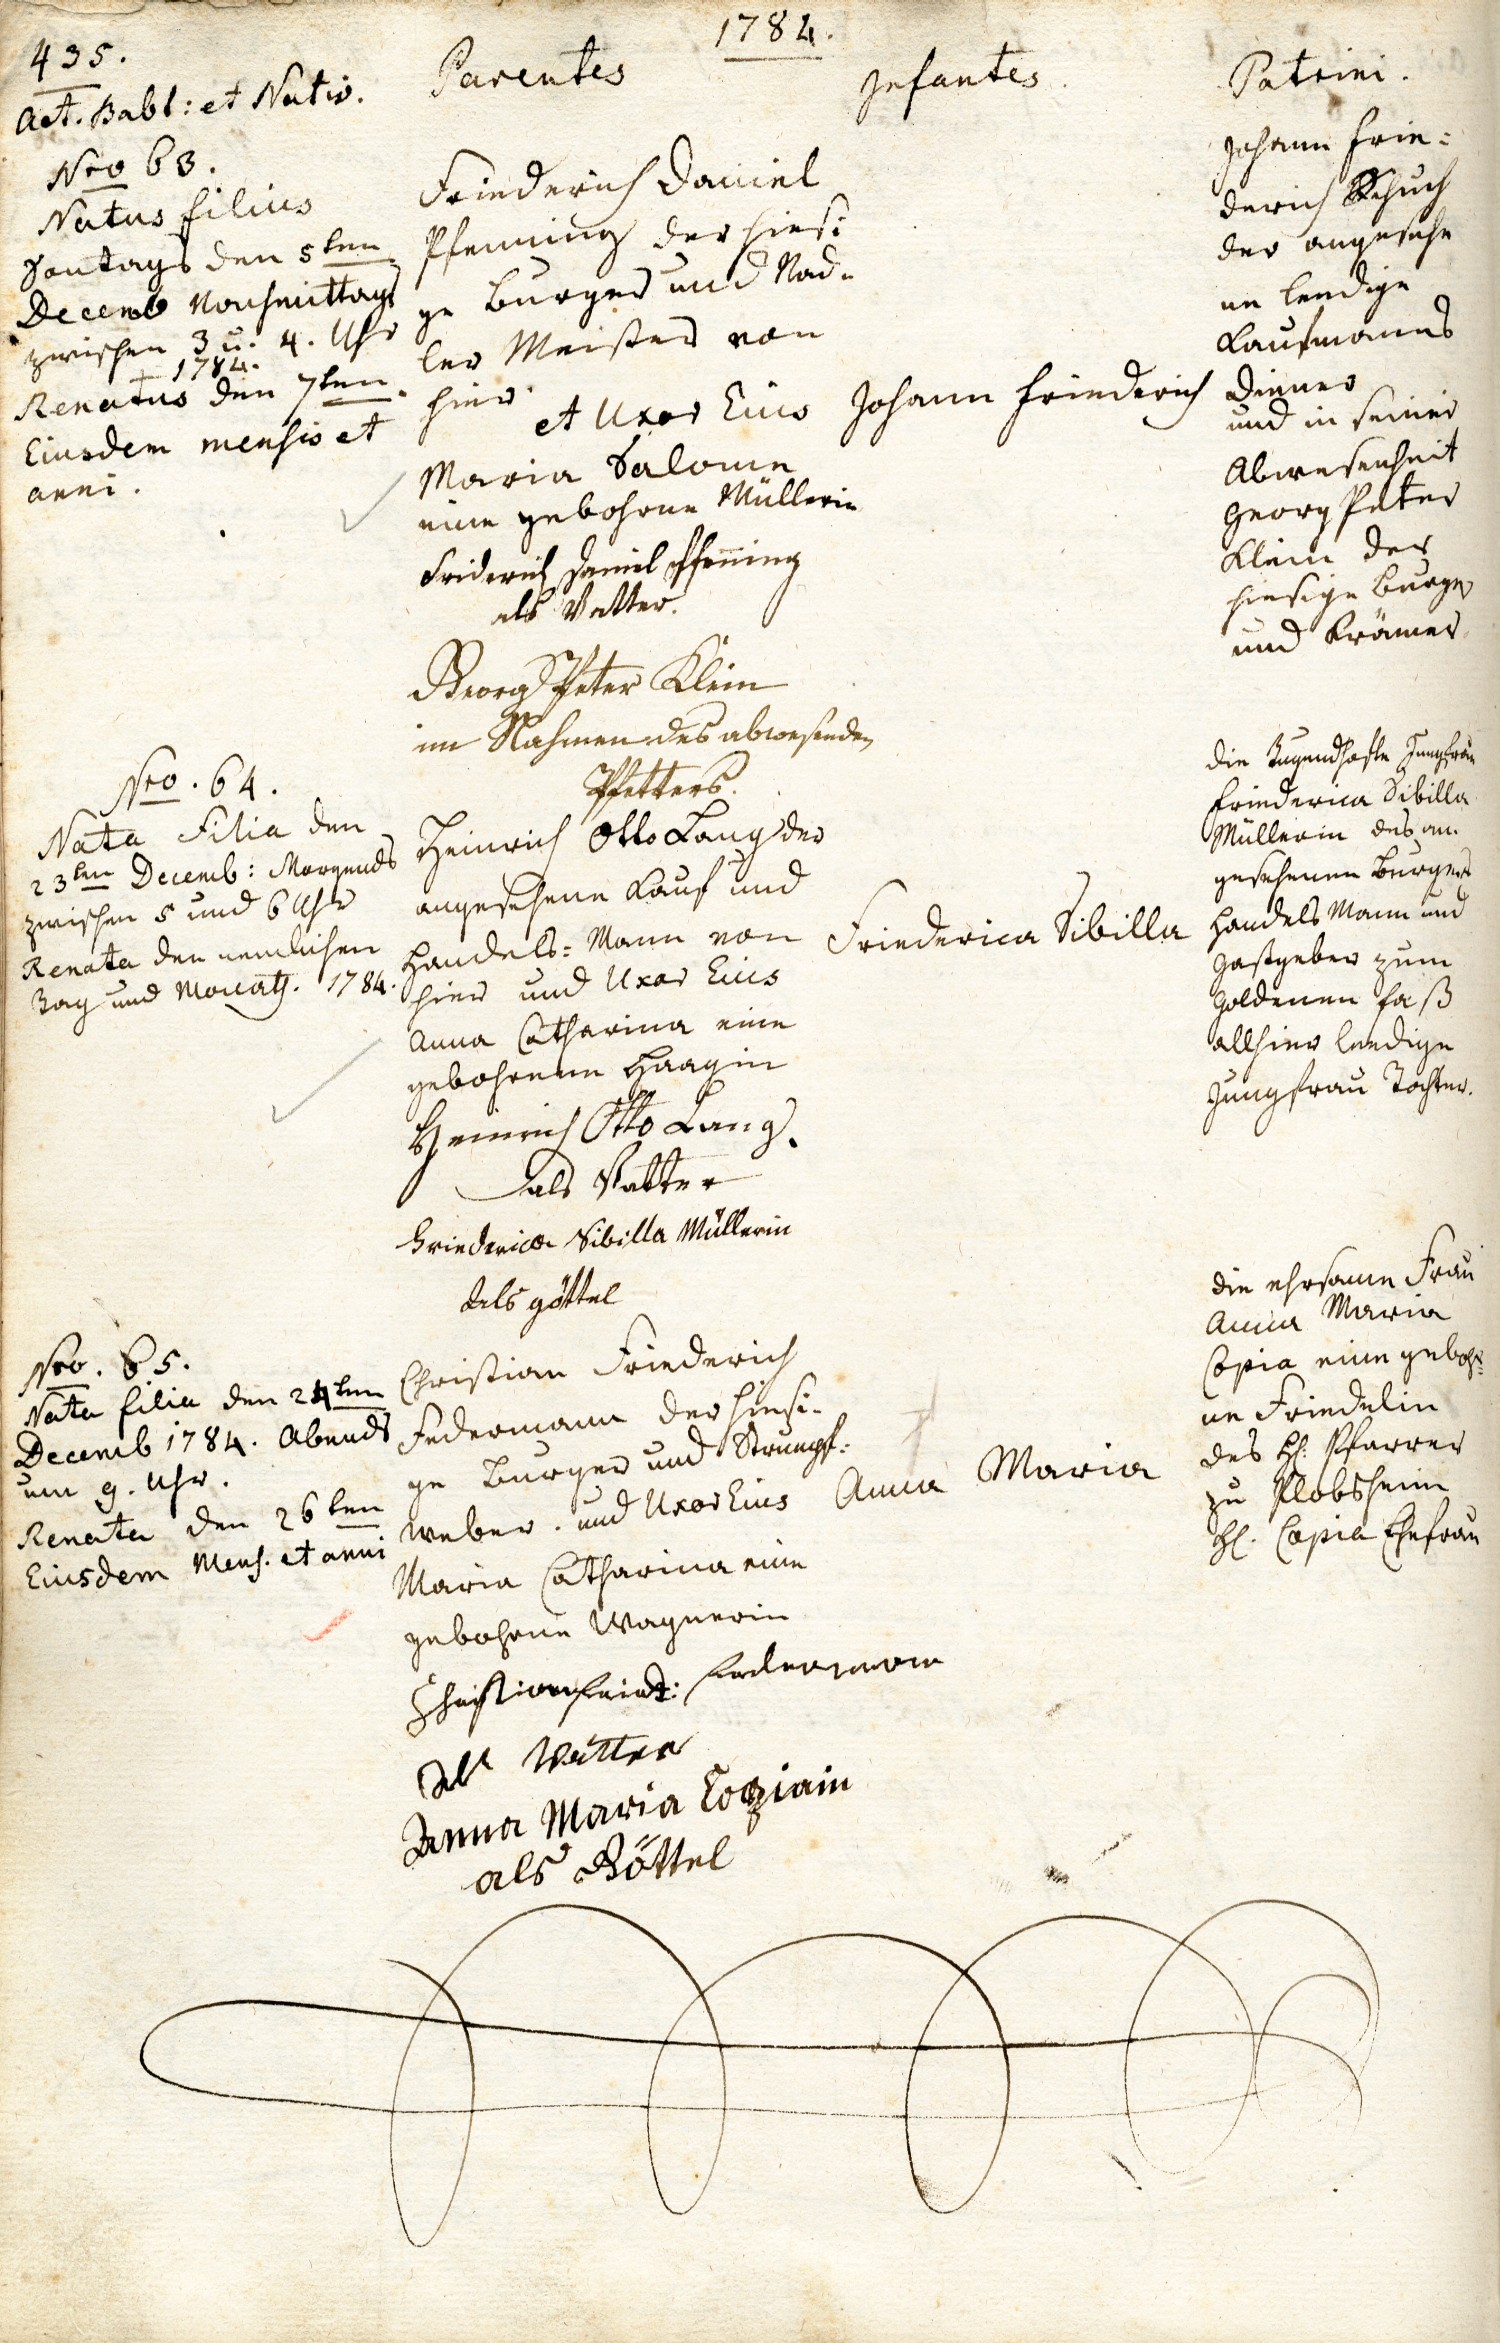 1784.
435.
Act. Babt: et Nativ.
Parentes
Infantes.
Patrini.
Nro 63.
Natus filius
Sontags den 5ten
Decemb Nachmittags
zwischen 3 u. 4. Uhr
1784.
Renatus den 7ten.
Eiusdem mensis et
anni.
Friederich Daniel
Pfenning der hiesi
ge Burger und Nad-
ler Meister von
hier
et Uxor Eius
Maria Salome
eine gebohrne Müllerin
Friderich Daniel Pfenning
als Vatter.
Georg Peter Klein
im Nahmen des abwesenden
Pfetters.
Johann Friederich
Johann Frie=
derich Schuch
der angesehe
ne lendige
Kaufmanns
Diener
und in seiner
Abwesenheit
Georg Peter
Klein der
hiesige Burger
und Krämer
Nro. 64.
Nata Filia den
23ten Decemb: Morgends
zwischen 5 und 6 Uhr
Renata den nemlichen
Tag und Monath. 1784.
Heinrich Otto Lang der
angesehene Kauf und
Handels= Mann von
hier und Uxor Eius
Anna Catharina eine
gebohrene Haagin
Heinrich Otto Lang.
als Vatter
Friederica Sibilla Müllerin
als göttel
Friederica Sibilla
die Tugendhafte Jungfrau
Friederica Sibilla
Müllerin des an-
gesehenen Burgers
Handels Mann und
Gastgeber zum
Goldenen Faß
allhier lendige
Jungfrau Tochter.
Nro. 65.
Nata filia den 24ten
Decemb 1784. Abends
um 9. Uhr.
Renata den 26ten
Eiusdem Mens. et anni
Christian Friederich
Federmann der hiesi-
ge Burger und Strumpf=
weber. und Uxor Eius
Maria Catharina eine
gebohrne Wagnerin
Christian Feridt: Federmann
als Vatter
Anna Maria Copiain
als Göttel
Anna Maria
die ehrsame Frau
Anna Maria
Copia eine geboh=
ne Friedelin
des H: Pfarrer
zu Plobsheim
H. Copia Ehefrau